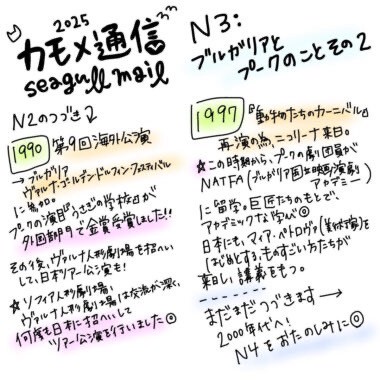 2025
カモメ通信
seagull mail
N2のつづき
1990 第9回海外公演
→ブルガリア
ヴァルナ・ゴールデンドルフィンフェスティバル
に参加。
プークの演目「うさぎの学校」が
外国部門で金賞受賞しました!!
その後、ヴァルナ人形劇場を招へい
して、日本ツアー公演も!
☆ソフィア人形劇場、
ヴァルナ人形劇場は交流が深く、
何度も日本に招へいして
ツアー公演を行いました◎
N3:
ブルガリアと
プークのことその2
1997 『動物たちのカーニバル』
再演の為、ニコリーナ来日。
☆この時期から、プークの劇団員が
NATFA(ブルガリア国立映画演劇
アカデミー)
に留学。巨匠たちのもとで、
アカデミックな学び◎
日本にも、マィア・ペトロヴァ(美術家)を
はじめとする、ものすごい方たちが
来日し講義をもつ。
まだまだつづきます→
2000年代へ!
N4をおたのしみに◎